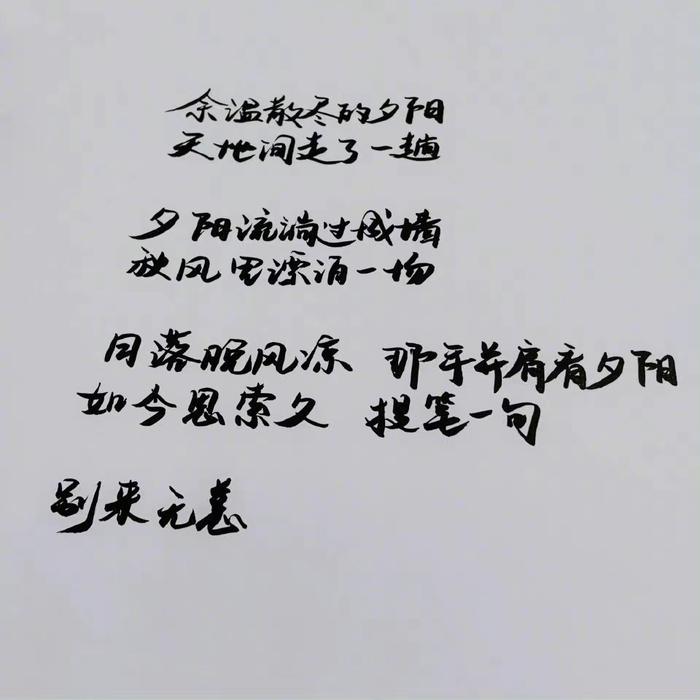 余温散尽的夕阳
天地间走了一趟
夕阳流淌过城墙
秋风里漂泊一场
日落晚风凉 那年并肩看夕阳
如今思索久 提笔一句
别来无恙